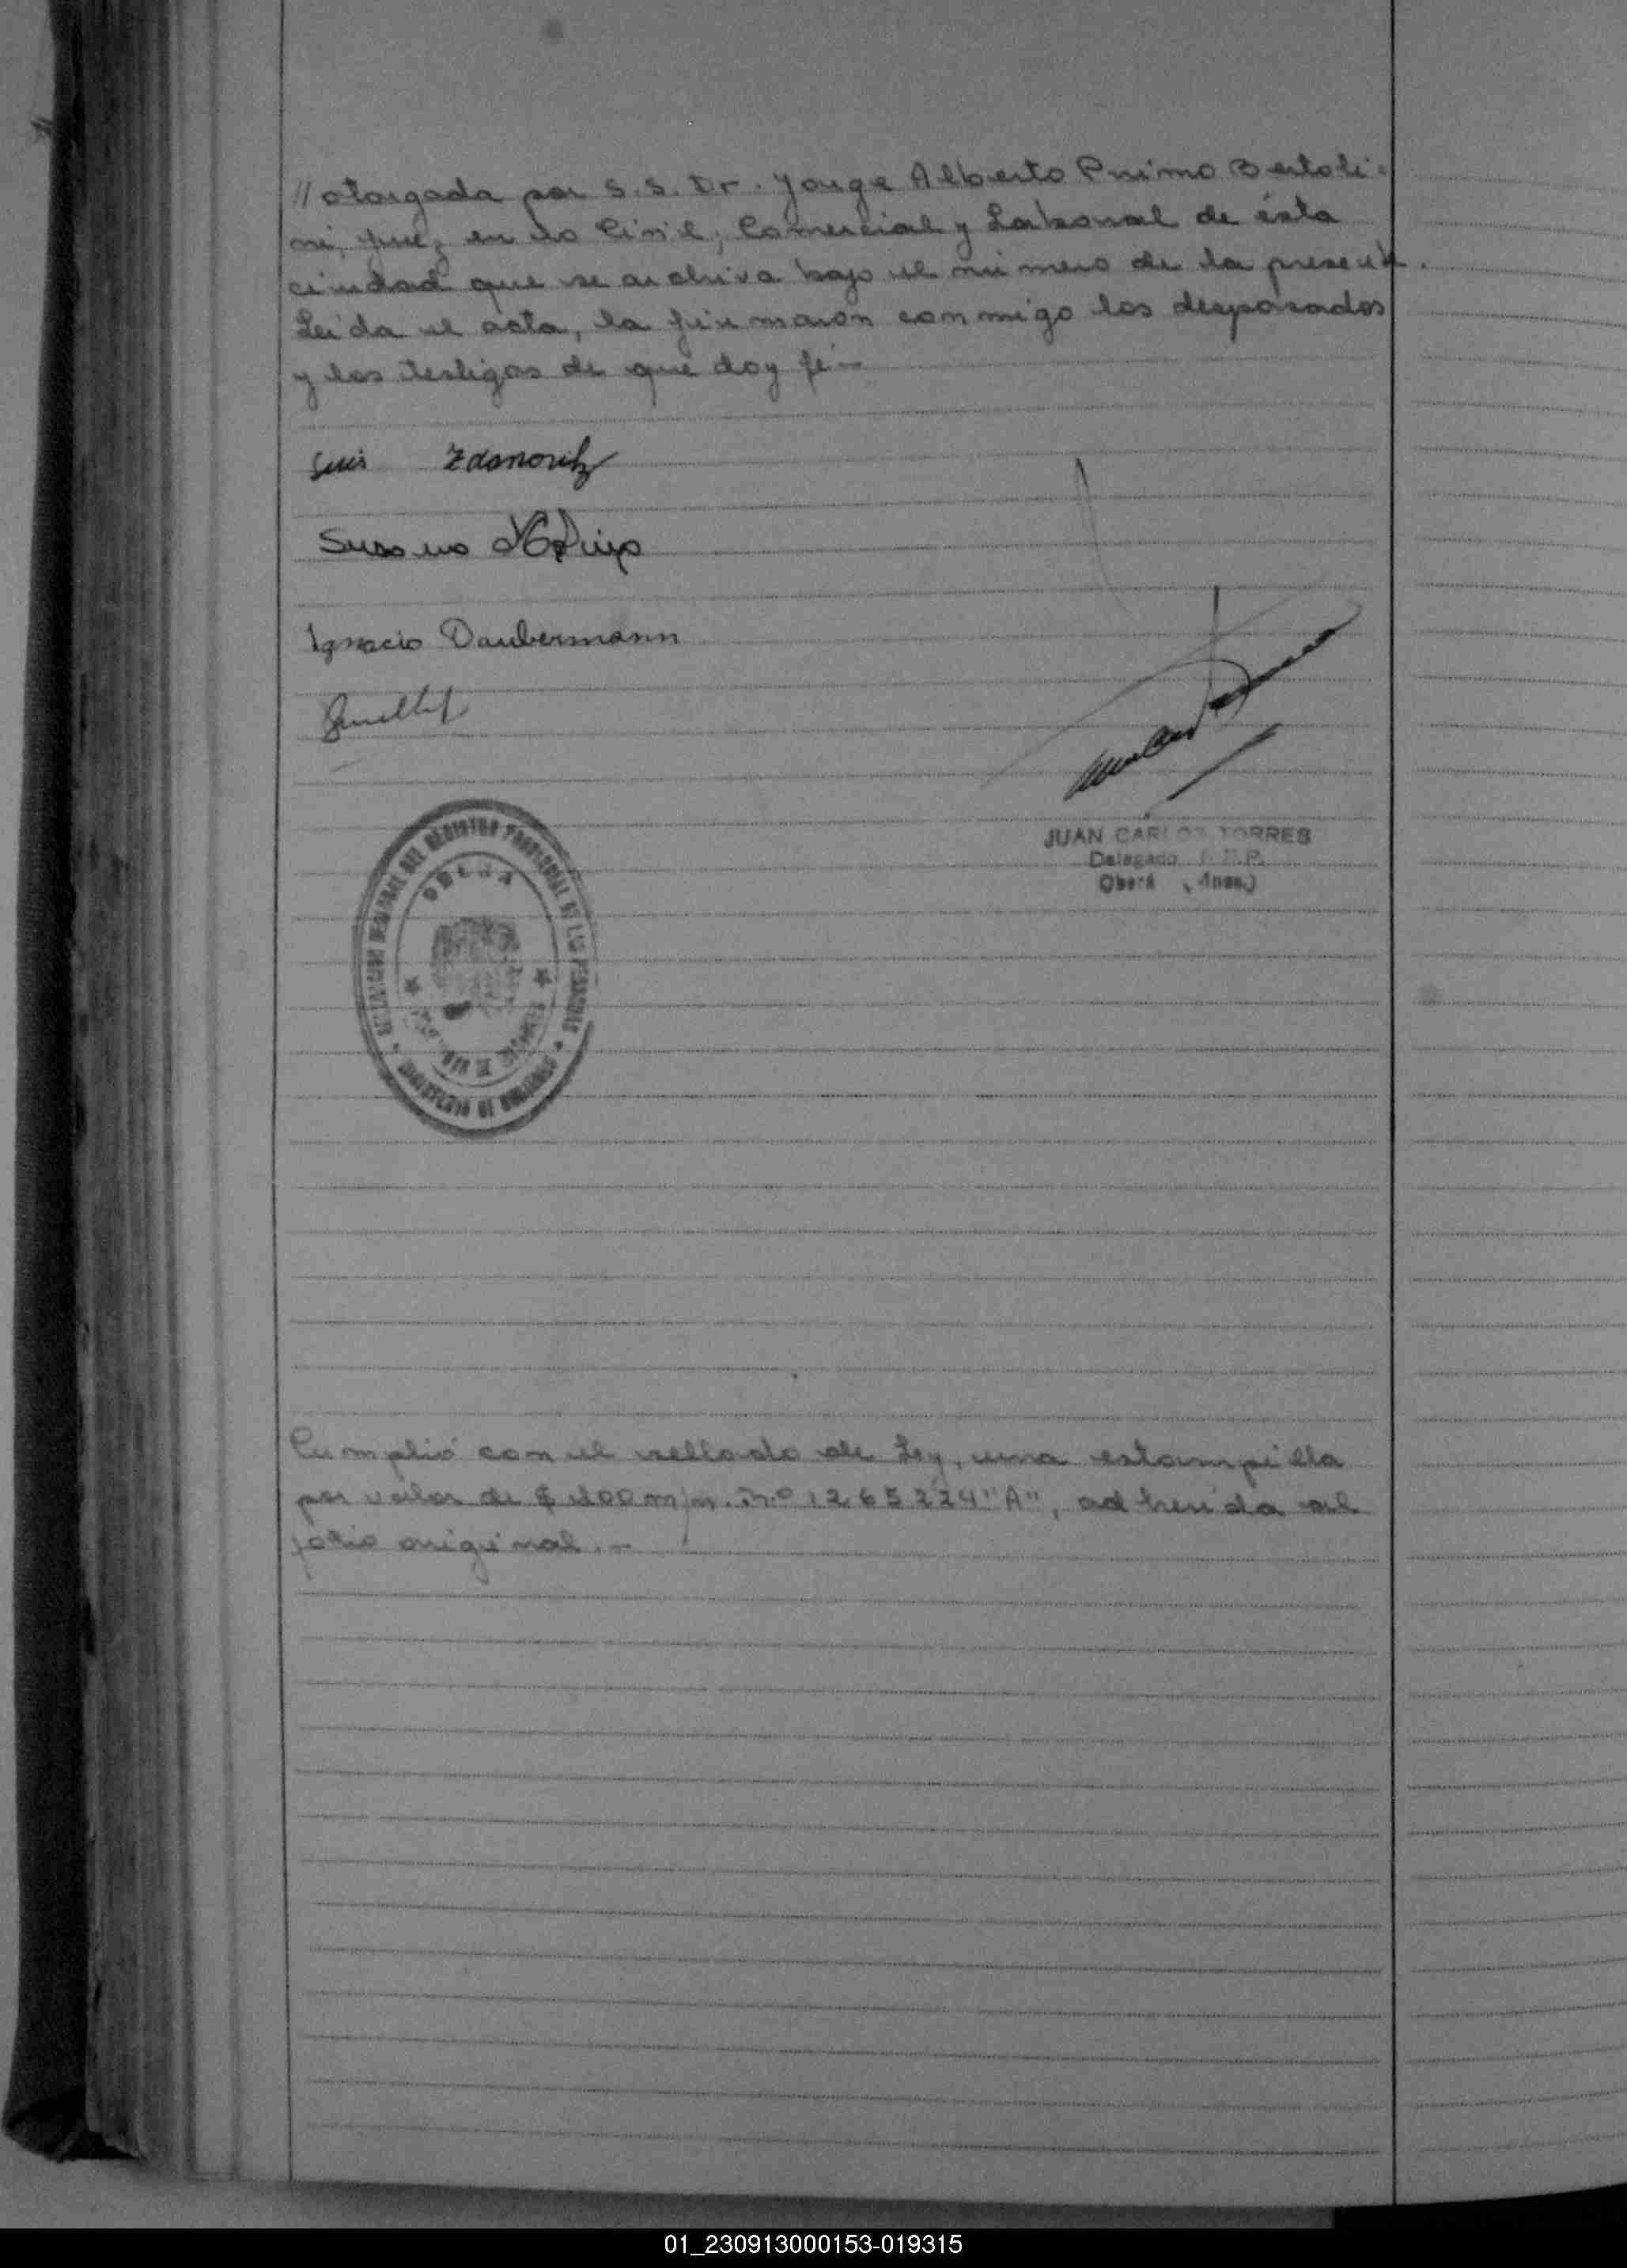 // otorgada por S.S. Dr. Jorge Alberto Primo Bertoli-
ni, juez en lo Civil, Comercial y Laboral de ésta
ciudad que se archiva bajo el número de la presente.
Leída el acta, la firmaron conmigo los desposados
y los testigos de que doy fé.-
Luis Zdanovitz
Susana
Ignacio Daubermann
JUAN CARLOS TORRES
Delegado R.P.
Oberá (Mnes.)
DEL REGISTRO PROVINCIAL DE LAS PERSONAS
OBERA
MINISTERIO DE GOBIERNO
Cumplió con el sellado de Ley, una estampilla
por valor de $ 100 m/n. N.º 1265224 "A", adherida al
folio original.-
01_230913000153-019315